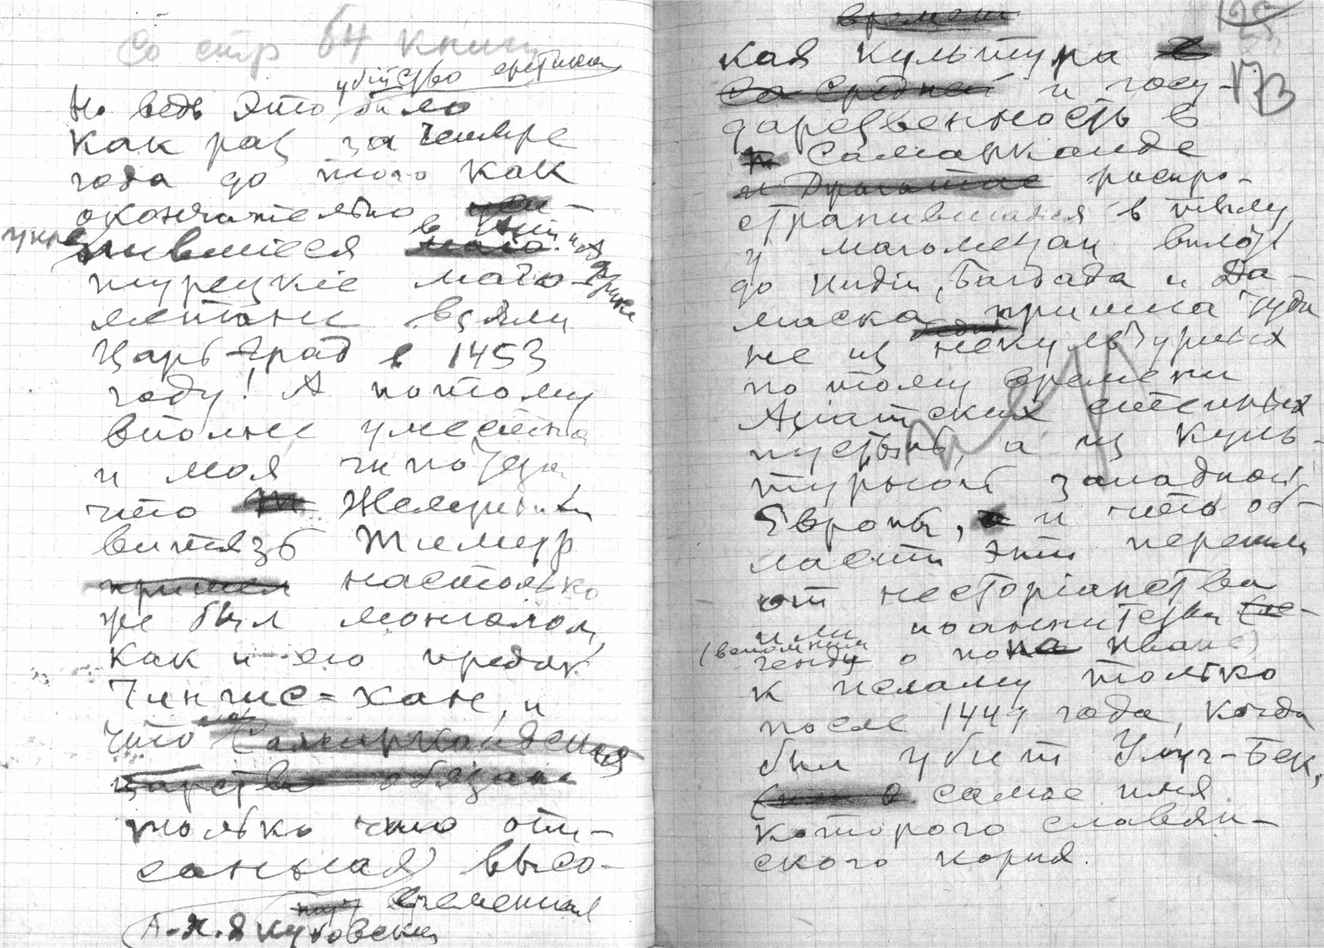 Со стр 64 книги
убійство еретика
Но ведь это было
Как раз за четыре
года до того как
окончательно
укре
пившіеся в Азіи и Африке
турецкіе маго-
метане взяли
Царь-Град в 1453
году! А потому
вполне уместна
и моя гипотеза,
что Железный
витязь Тимур
пришел настолько
же был монголом,
как и его предок
Чингис-Хан, и
что Самаркандская
царства обязан
только что опи-
санная высо-
временная
(А.Н. Якубовский
времени
кая культура
За Средней и госу-
173
дарственность в
Самарканде
распро-
странившаяся в тылу
у магометан вплоть
до Индіи, Багдада и Да-
маска, пришла туда
не из некультурных
по тому времени
Азіатских степных
пустынь, а из куль-
турной западной
Европы, и что об-
ласти эти перешли
от несторіанства
или иоаннитезма (ле-
(вспомним
генду о попа Иване)
к исламу только
после 1449 года, когда
был убит Улуг-Бек,
самое имя
которого славян-
ского корня.